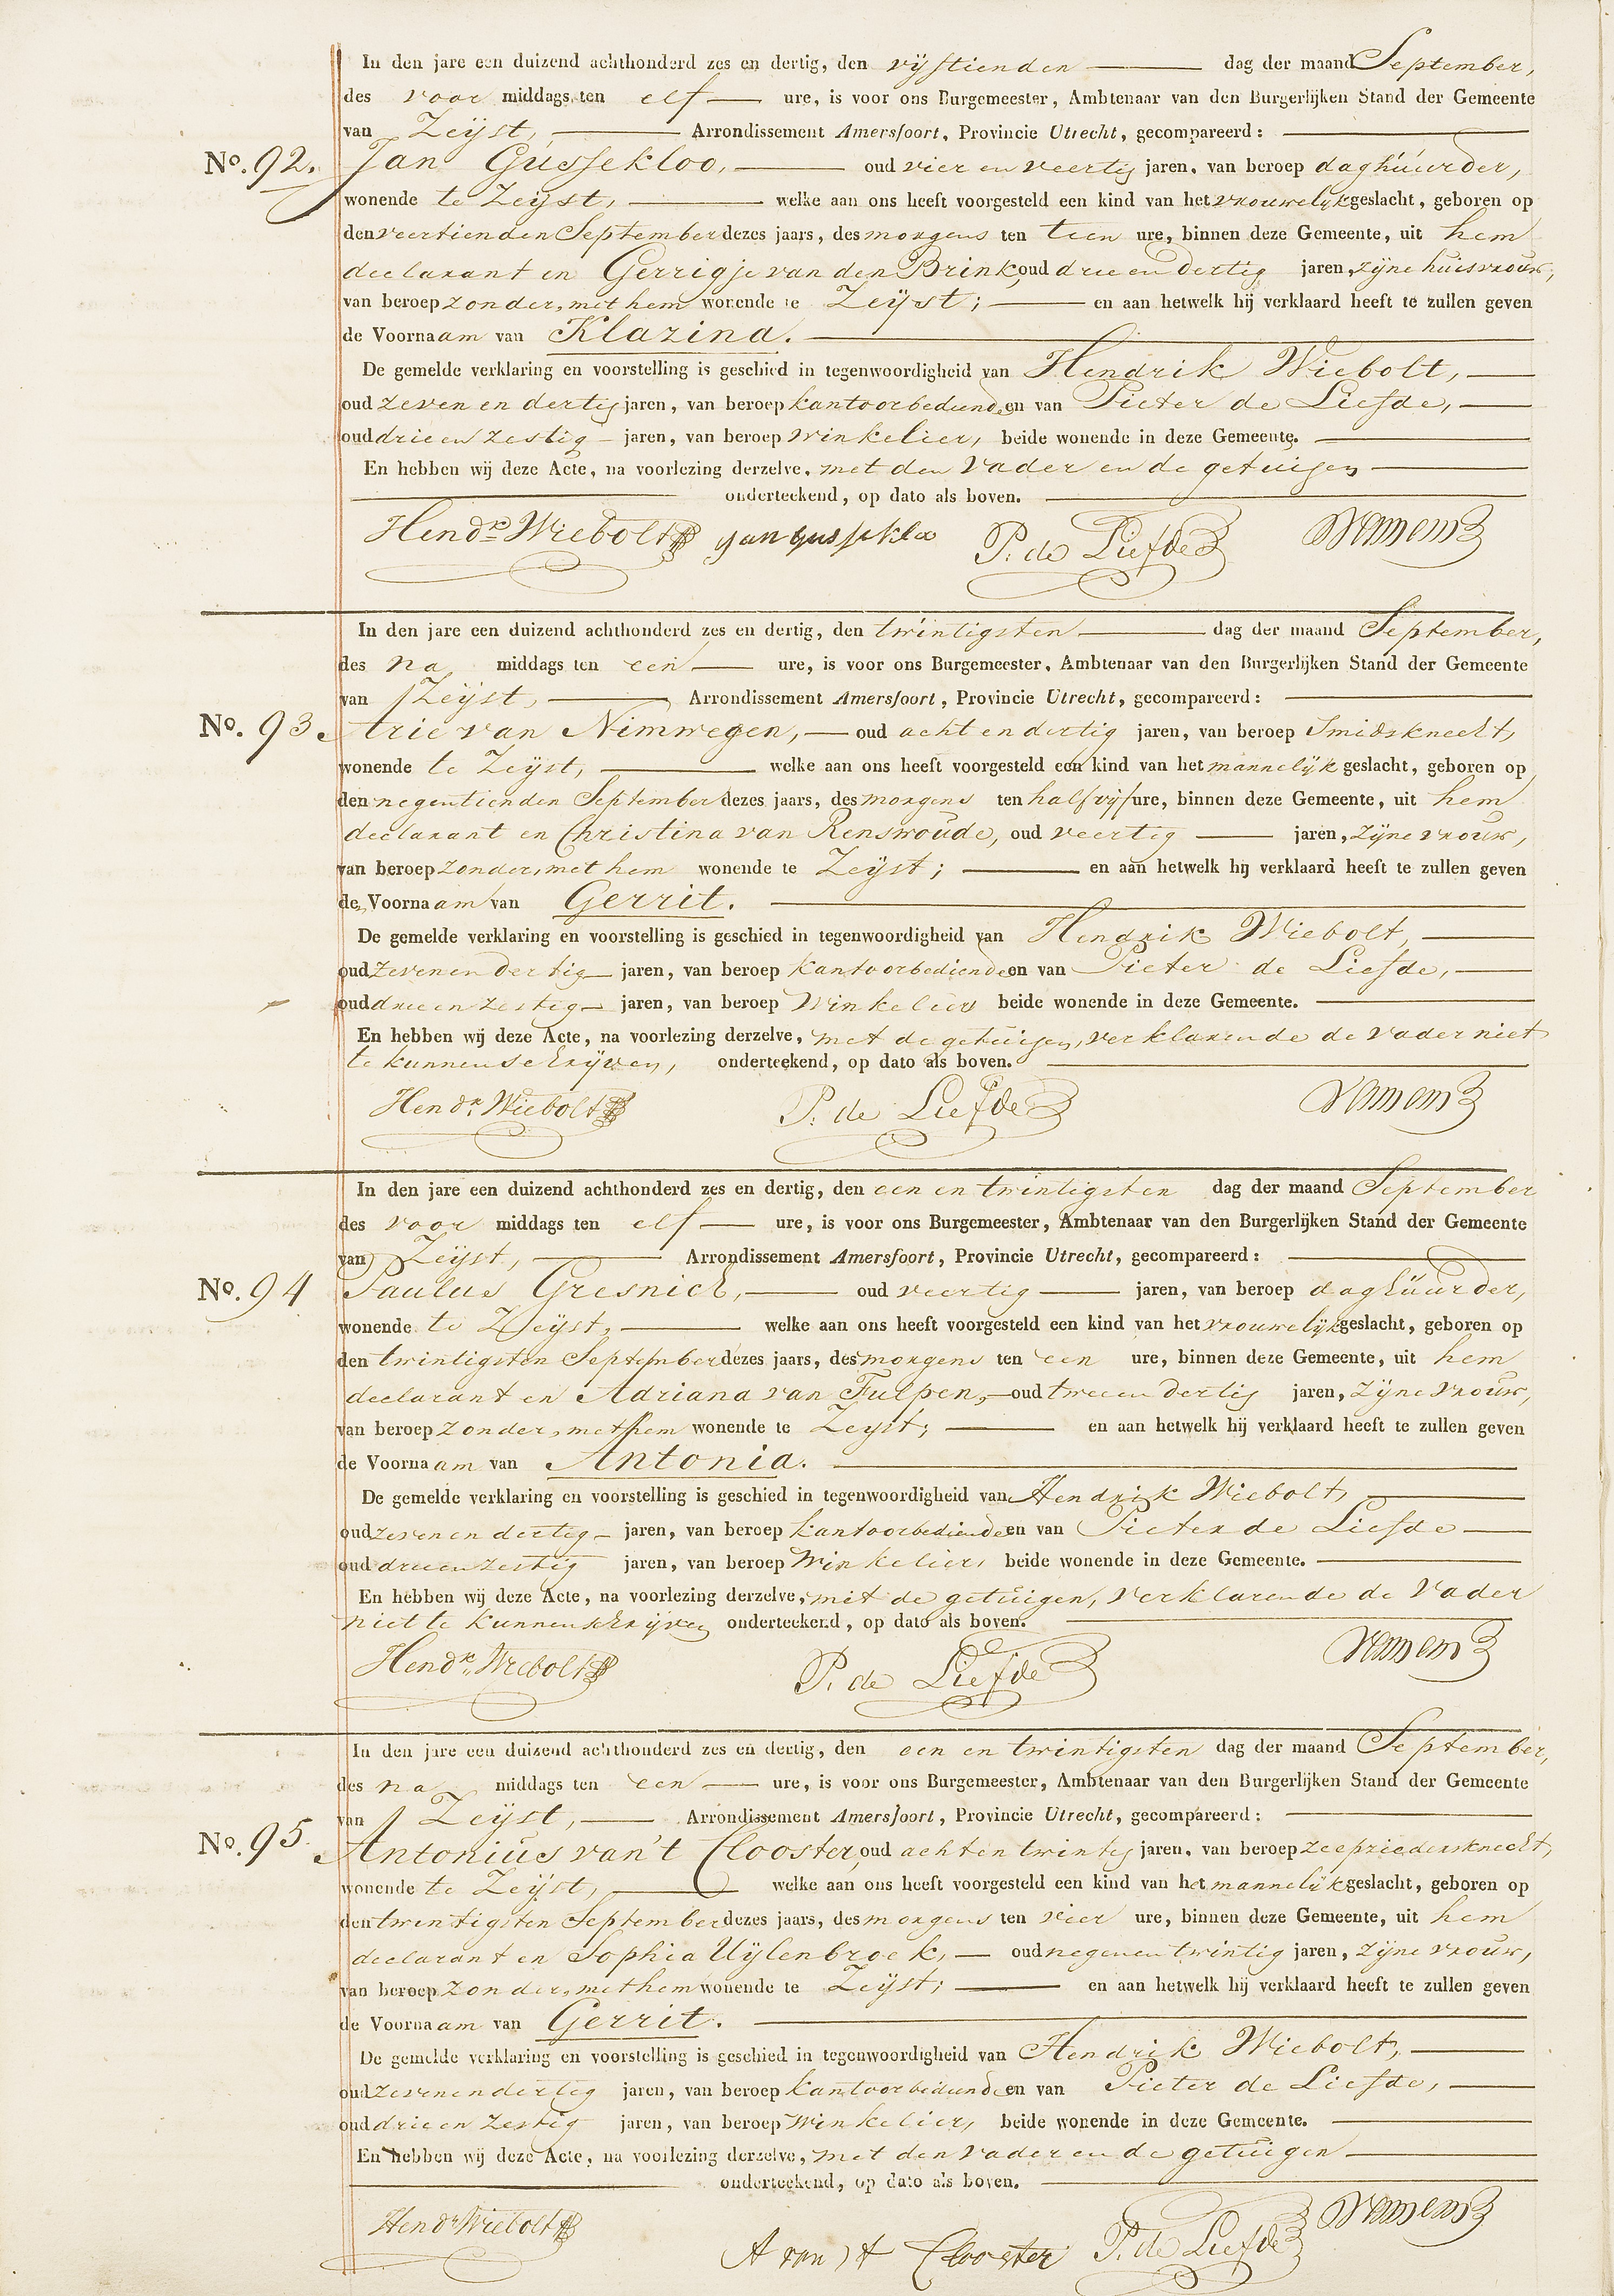 In den jare een duizend achthonderd zes en dertig, den vijftienden dag der maand September,
des voor middags ten elf ure, is voor ons Burgemeester, Ambtenaar van den Burgerlijken Stand der Gemeente
van Zeijst, Arrondissement Amersfoort, Provincie Utrecht, gecompareerd:
No. 92. Jan Gussekloo, oud vier en veertig jaren, van beroep daghuurder,
wonende te Zeijst, welke aan ons heeft voorgesteld een kind van het vrouwelijk geslacht, geboren op
den veertienden September dezes jaars, des morgens ten tien ure, binnen deze Gemeente, uit hem
declarant en Gerrigje van den Brink, oud drie en dertig jaren, zijne huisvrouw,
van beroep zonder, met hem wonende te Zeijst; en aan hetwelk hij verklaard heeft te zullen geven
de Voornaam van Klazina.
De gemelde verklaring en voorstelling is geschied in tegenwoordigheid van Hendrik Wiebolt,
oud zeven en dertig jaren, van beroep kantoorbediende en van Pieter de Liefde,
oud drie en zestig jaren, van beroep Winkelier, beide wonende in deze Gemeente.
En hebben wij deze Acte, na voorlezing derzelve, met den Vader en de getuigen
onderteekend, op dato als boven.
Hendk Wiebolt Jan Gussekloo P. de Liefde
In den jare een duizend achthonderd zes en dertig, den twintigsten dag der maand September,
des na middags ten een ure, is voor ons Burgemeester, Ambtenaar van den Burgerlijken Stand der Gemeente
van Zeijst, Arrondissement Amersfoort, Provincie Utrecht, gecompareerd:
No. 93. Arie van Nimwegen, oud acht en dertig jaren, van beroep Smidsknecht,
wonende te Zeijst, welke aan ons heeft voorgesteld een kind van het mannelijk geslacht, geboren op
den negentienden September dezes jaars, des morgens ten half vijf ure, binnen deze Gemeente, uit hem
declarant en Christina van Renswoude, oud veertig jaren, zijne vrouw,
van beroep zonder, met hem wonende te Zeijst; en aan hetwelk hij verklaard heeft te zullen geven
de Voornaam van Gerrit.
De gemelde verklaring en voorstelling is geschied in tegenwoordigheid van Hendrik Wiebolt,
oud zeven en dertig jaren, van beroep kantoorbediende en van Pieter de Liefde,
oud drie en zestig jaren, van beroep Winkelier beide wonende in deze Gemeente.
En hebben wij deze Acte, na voorlezing derzelve, met de getuigen, verklarende de Vader niet
te kunnen schrijven, onderteekend, op dato als boven.
Hendk. Wiebolt P. de Liefde
In den jare een duizend achthonderd zes en dertig, den een en twintigsten dag der maand September
des voor middags ten elf ure, is voor ons Burgemeester, Ambtenaar van den Burgerlijken Stand der Gemeente
van Zeijst, Arrondissement Amersfoort, Provincie Utrecht, gecompareerd:
No. 94 Paulus Gresnich, oud veertig jaren, van beroep daghuurder,
wonende te Zeijst, welke aan ons heeft voorgesteld een kind van het vrouwelijk geslacht, geboren op
den twintigsten September dezes jaars, des morgens ten een ure, binnen deze Gemeente, uit hem
declarant en Adriana van Tulpen, oud twee en dertig jaren, zijne Vrouw,
van beroep zonder, met hem wonende te Zeijst; en aan hetwelk hij verklaard heeft te zullen geven
de Voornaam van Antonia.
De gemelde verklaring en voorstelling is geschied in tegenwoordigheid van Hendrik Wiebolt,
oud zeven en dertig jaren, van beroep kantoorbediende en van Pieter de Liefde
oud drie en zestig jaren, van beroep Winkelier, beide wonende in deze Gemeente.
En hebben wij deze Acte, na voorlezing derzelve, met de getuigen, verklarende de Vader
niet te kunnen schrijven onderteekend, op dato als boven.
Hendk. Wiebolt P. de Liefde
In den jare een duizend achthonderd zes en dertig, den een en twintigsten dag der maand September,
des na middags ten een ure, is voor ons Burgemeester, Ambtenaar van den Burgerlijken Stand der Gemeente
van Zeijst, Arrondissement Amersfoort, Provincie Utrecht, gecompareerd:
No. 95. Antonius van 't Clooster, oud acht en twintig jaren, van beroep zeepziedersknecht,
wonende te Zeijst, welke aan ons heeft voorgesteld een kind van het mannelijk geslacht, geboren op
den twintigsten September dezes jaars, des morgens ten vier ure, binnen deze Gemeente, uit hem
declarant en Sophia Uijlenbroek, oud negen en twintig jaren, zijne vrouw,
van beroep zonder, met hem wonende te Zeijst; en aan hetwelk hij verklaard heeft te zullen geven
de Voornaam van Gerrit.
De gemelde verklaring en voorstelling is geschied in tegenwoordigheid van Hendrik Wiebolt,
oud zeven en dertig jaren, van beroep kantoorbediende en van Pieter de Liefde,
oud drie en zestig jaren, van beroep Winkelier, beide wonende in deze Gemeente.
En hebben wij deze Acte, na voorlezing derzelve, met den Vader en de getuigen
onderteekend, op dato als boven.
Hendk Wiebolt A van t Clooster P. de Liefde